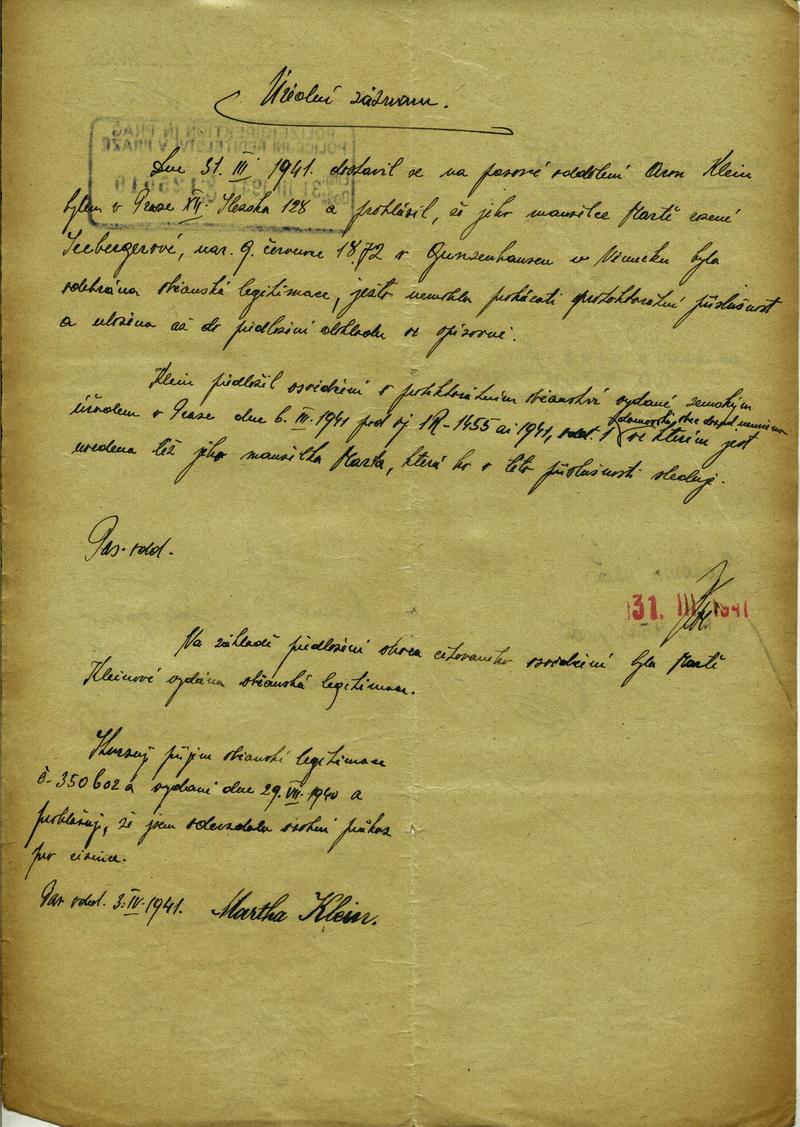 Úřední záznam.
POLIZEIDIREKTION IN PRAG
POLICEJNÍ ŘEDITELSTVÍ V PRAZE
Dne 31. III 1941. dostavil se na pasové oddělení Aron Klein
bytem v Praze XII. Slezská 128 a prohlásil, že jeho manželce Martě rozené
Seebergerové, nar. 9. července 1872 v Gunzenhausen v Německu byla
odebrána občanská legitimace, ježto nemohla prokázati protektorátní příslušnost
a uložena až do předložení dokladu ve opisovně.
Klein předložil osvědčení o protektorátním občanství vydané zemským
úřadem v Praze dne 6. III. 1941 pod čj. 1R-1455 ai 1941, odd. 1 ve kterém jest
uvedena též jeho manželka Marta, která ho v této příslušnosti sleduje.
Pas. odd.
31. III. 1941
Na základě předložení shora citovaného osvědčení byla Martě
Kleinové vydána občanská legitimace.
Stvrzuji příjem občanské legitimace
č. 350602 a vydané dne 29. VII. 1940 a
prohlašuji, že jsem odevzdala osobní průkaz
pro cizince.
Pas odd. 3. IV. 1941. Martha Klein.